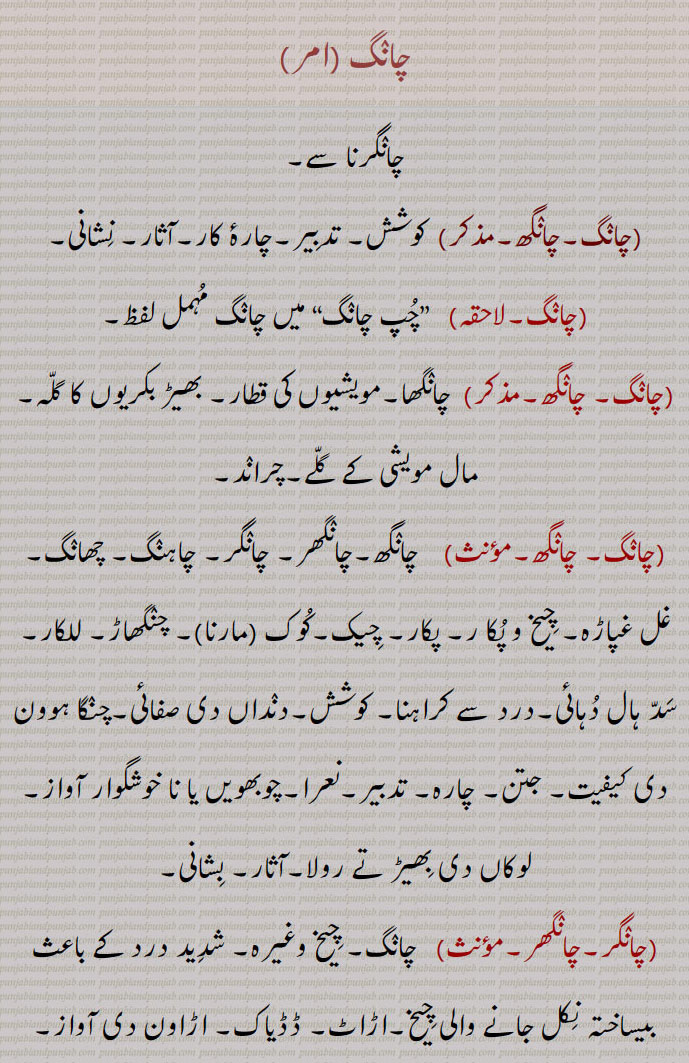 چانٛگ (امر)
چانٛگرنا سے۔
(چانٛگ۔چانٛگھ۔مذکر) کوشش۔ تدبِیر۔چارۂ کار۔آثار۔ نِشانی۔
(چانٛگ۔لاحقہ) ”چُپ چانٛگ“ میں چانٛگ مُہمل لفظ۔
(چانٛگ۔ چانٛگھ۔مذکر) چانٛگھا۔مویشیوں کی قطار۔ بھیڑ بکریوں کا گلّہ۔
مال مویشی کے گلّے۔چرانٛد۔
(چانٛگ۔ چانٛگھ۔مؤنث) چانٛگھ۔چانٛگھر۔ چانٛگر۔ چاہنٛگ۔ چھانٛگ۔
غل غپاڑہ۔ چِیخ و پُکا ر۔ پکار۔ چِیک۔کُوک (مارنا)۔ چنٛگھاڑ۔ للکار۔
سَدّ ہال دُہائی۔درد سے کراہنا۔ کوشش۔دنٛداں دی صفائی۔چنٛگا ہوون
دی کیفیت۔ جتن۔ چارہ۔ تدبیر۔نعرا۔چوبھویں یا نا خوشگوار آواز۔
لوکاں دی بِھیڑ تے رولا۔آثار۔ بِشانی۔
(چانٛگر۔چانٛگھر۔مؤنث) چانٛگ۔چِیخ وغیرہ۔ شدِید درد کے باعث
بیساختہ نِکل جانے والی چِیخ۔اڑاٹ۔ ڈڈیاک۔ اڑاون دی آواز۔